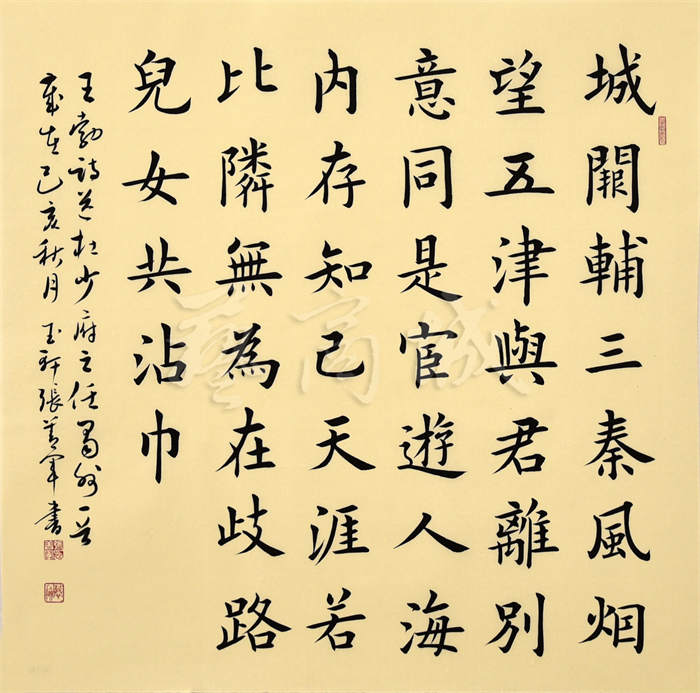 城闕輔三秦風烟
望五津與君離別
意同是宦遊人海
内存知己天涯若
比隣無為在歧路
兒女共沾巾
王勃詩送杜少府之任蜀州一首
歲在己亥秋月 張善軍書